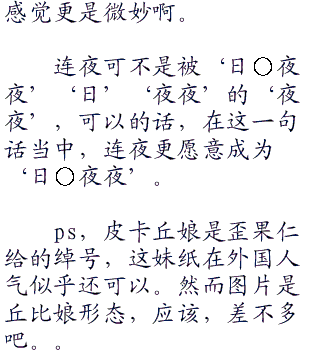 感觉更是微妙啊。
连夜可不是被‘日○夜
夜’‘日’‘夜夜’的‘夜
夜’，可以的话，在这一句
话当中，连夜更愿意成为
‘日○夜夜’。
ps，皮卡丘娘是歪果仁
给的绰号，这妹纸在外国人
气似乎还可以。然而图片是
丘比娘形态，应该，差不多
吧。。